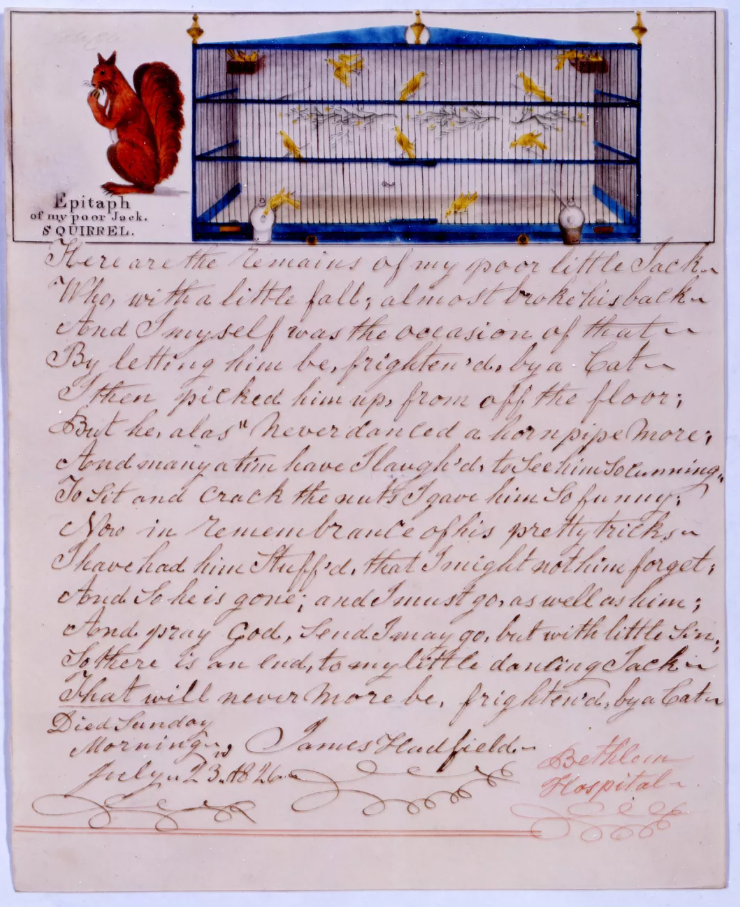 Epitaph
of my poor Jack.
SQUIRREL.
Here are the Remains of my poor little Jack
Who, with a little fall; almost broke his back
And I myself was the occasion of that
By letting him be, frighten'd, by a Cat
I then picked him up, from off the floor;
But he, alas" Never danced a hornpipe More;
And many a tim have I laugh'd, to See him So cunning,
To Sit and Crack the nuts I gave him So funny;
Now in Remembrance of his pretty tricks
I have had him Stuff'd, that I might not him forget;
And So he is gone; and I must go, as well as him;
And pray God, Send I may go, but with little Sin,
So there is an end, to my little dancing Jack
That will never More be, frighten'd, by a Cat
Died Sunday
Morning,
July 23. 1826
James Hadfield
Bethlem
Hospital